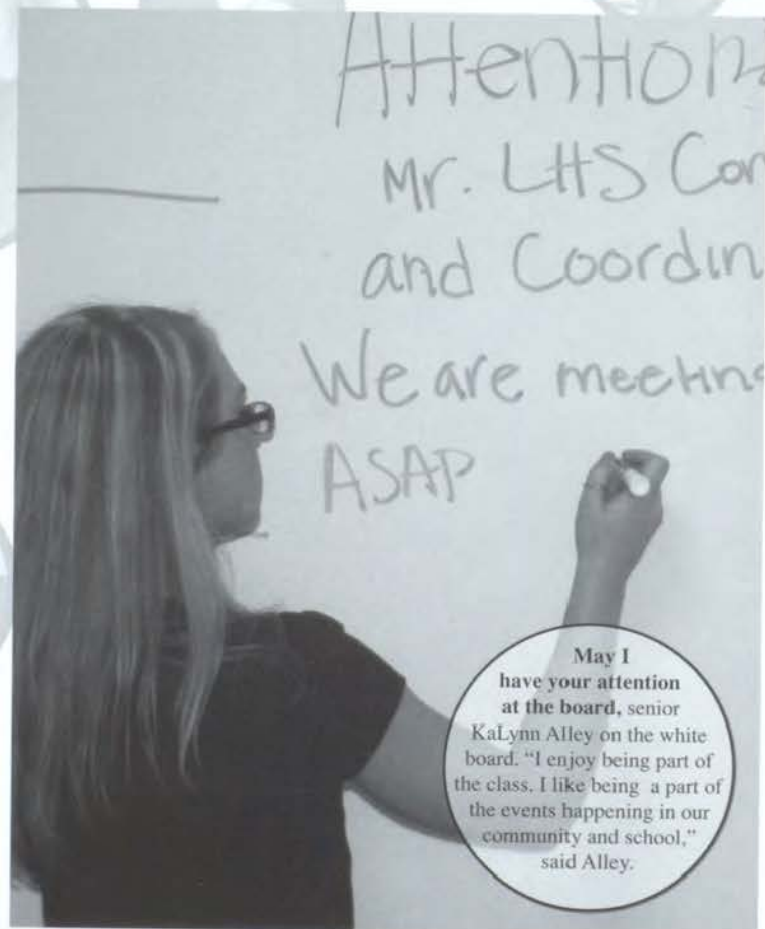 Attention
Mr. LHS Con
and Coordin
We are meeting
ASAP
May I
have your attention
at the board, senior
KaLynn Alley on the white
board. “I enjoy being part of
the class. I like being a part of
the events happening in our
community and school,”
said Alley.